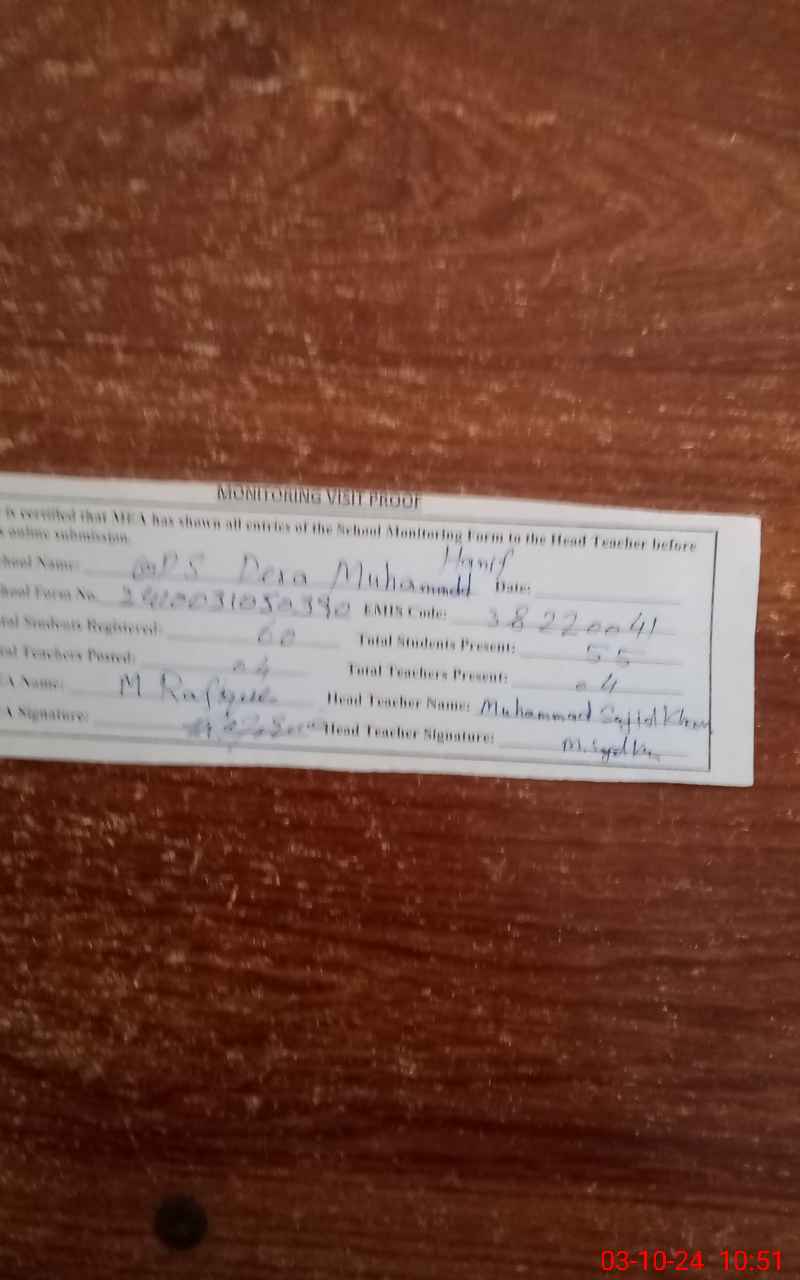 MONITORING VISIT PROOF
is certified that MEA has shown all entries of the School Monitoring Form to the Head Teacher before
online submission.
Hanif
chool Name: GPS Dera Muhammad Date:
hool Form No. 2410031050390 EMIS Code: 38220041
tal Students Registered: 60 Total Students Present: 55
tal Teachers Posted: 04 Total Teachers Present: 04
EA Name: M Rafique Head Teacher Name: Muhammad Sajid Khan
A Signature: Head Teacher Signature:
03-10-24 10:51